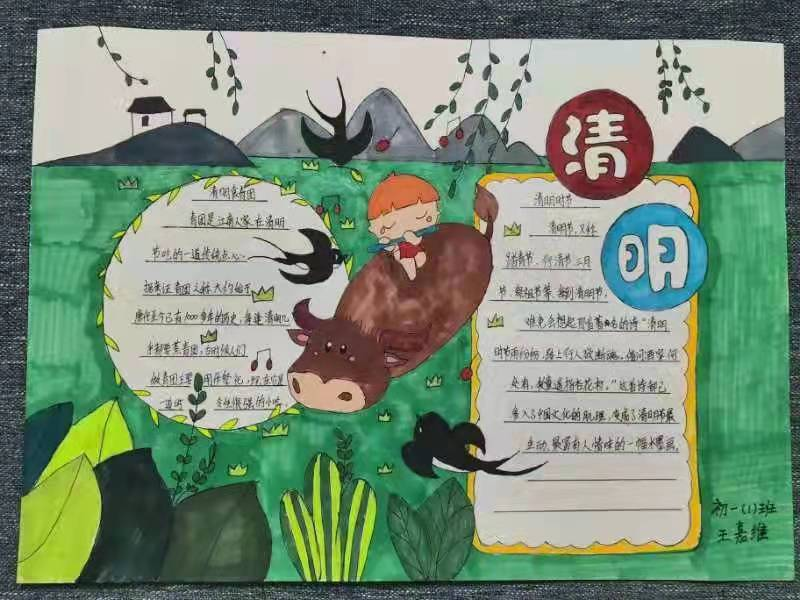 清明
清明食青团
青团是江南人家在清明
节吃的一道传统点心。
据考证青团之称大约始于
唐代至今已有1000多年的历史，每逢清明几
乎都要蒸青团，古时候人们
做青团主要用作祭祀，
清明时节
清明节，又称
踏青节、行清节、三月
节、祭祖节等，每到清明节，
难免会想起
著名的诗“清明
时节雨纷纷，路上行人欲断魂。借问酒家何
处有，牧童遥指杏花村。”这首诗
融入了中国文化的肌理，变成了清明节最
生动、最富有人情味的一幅水墨画。
初一(1)班
王嘉维